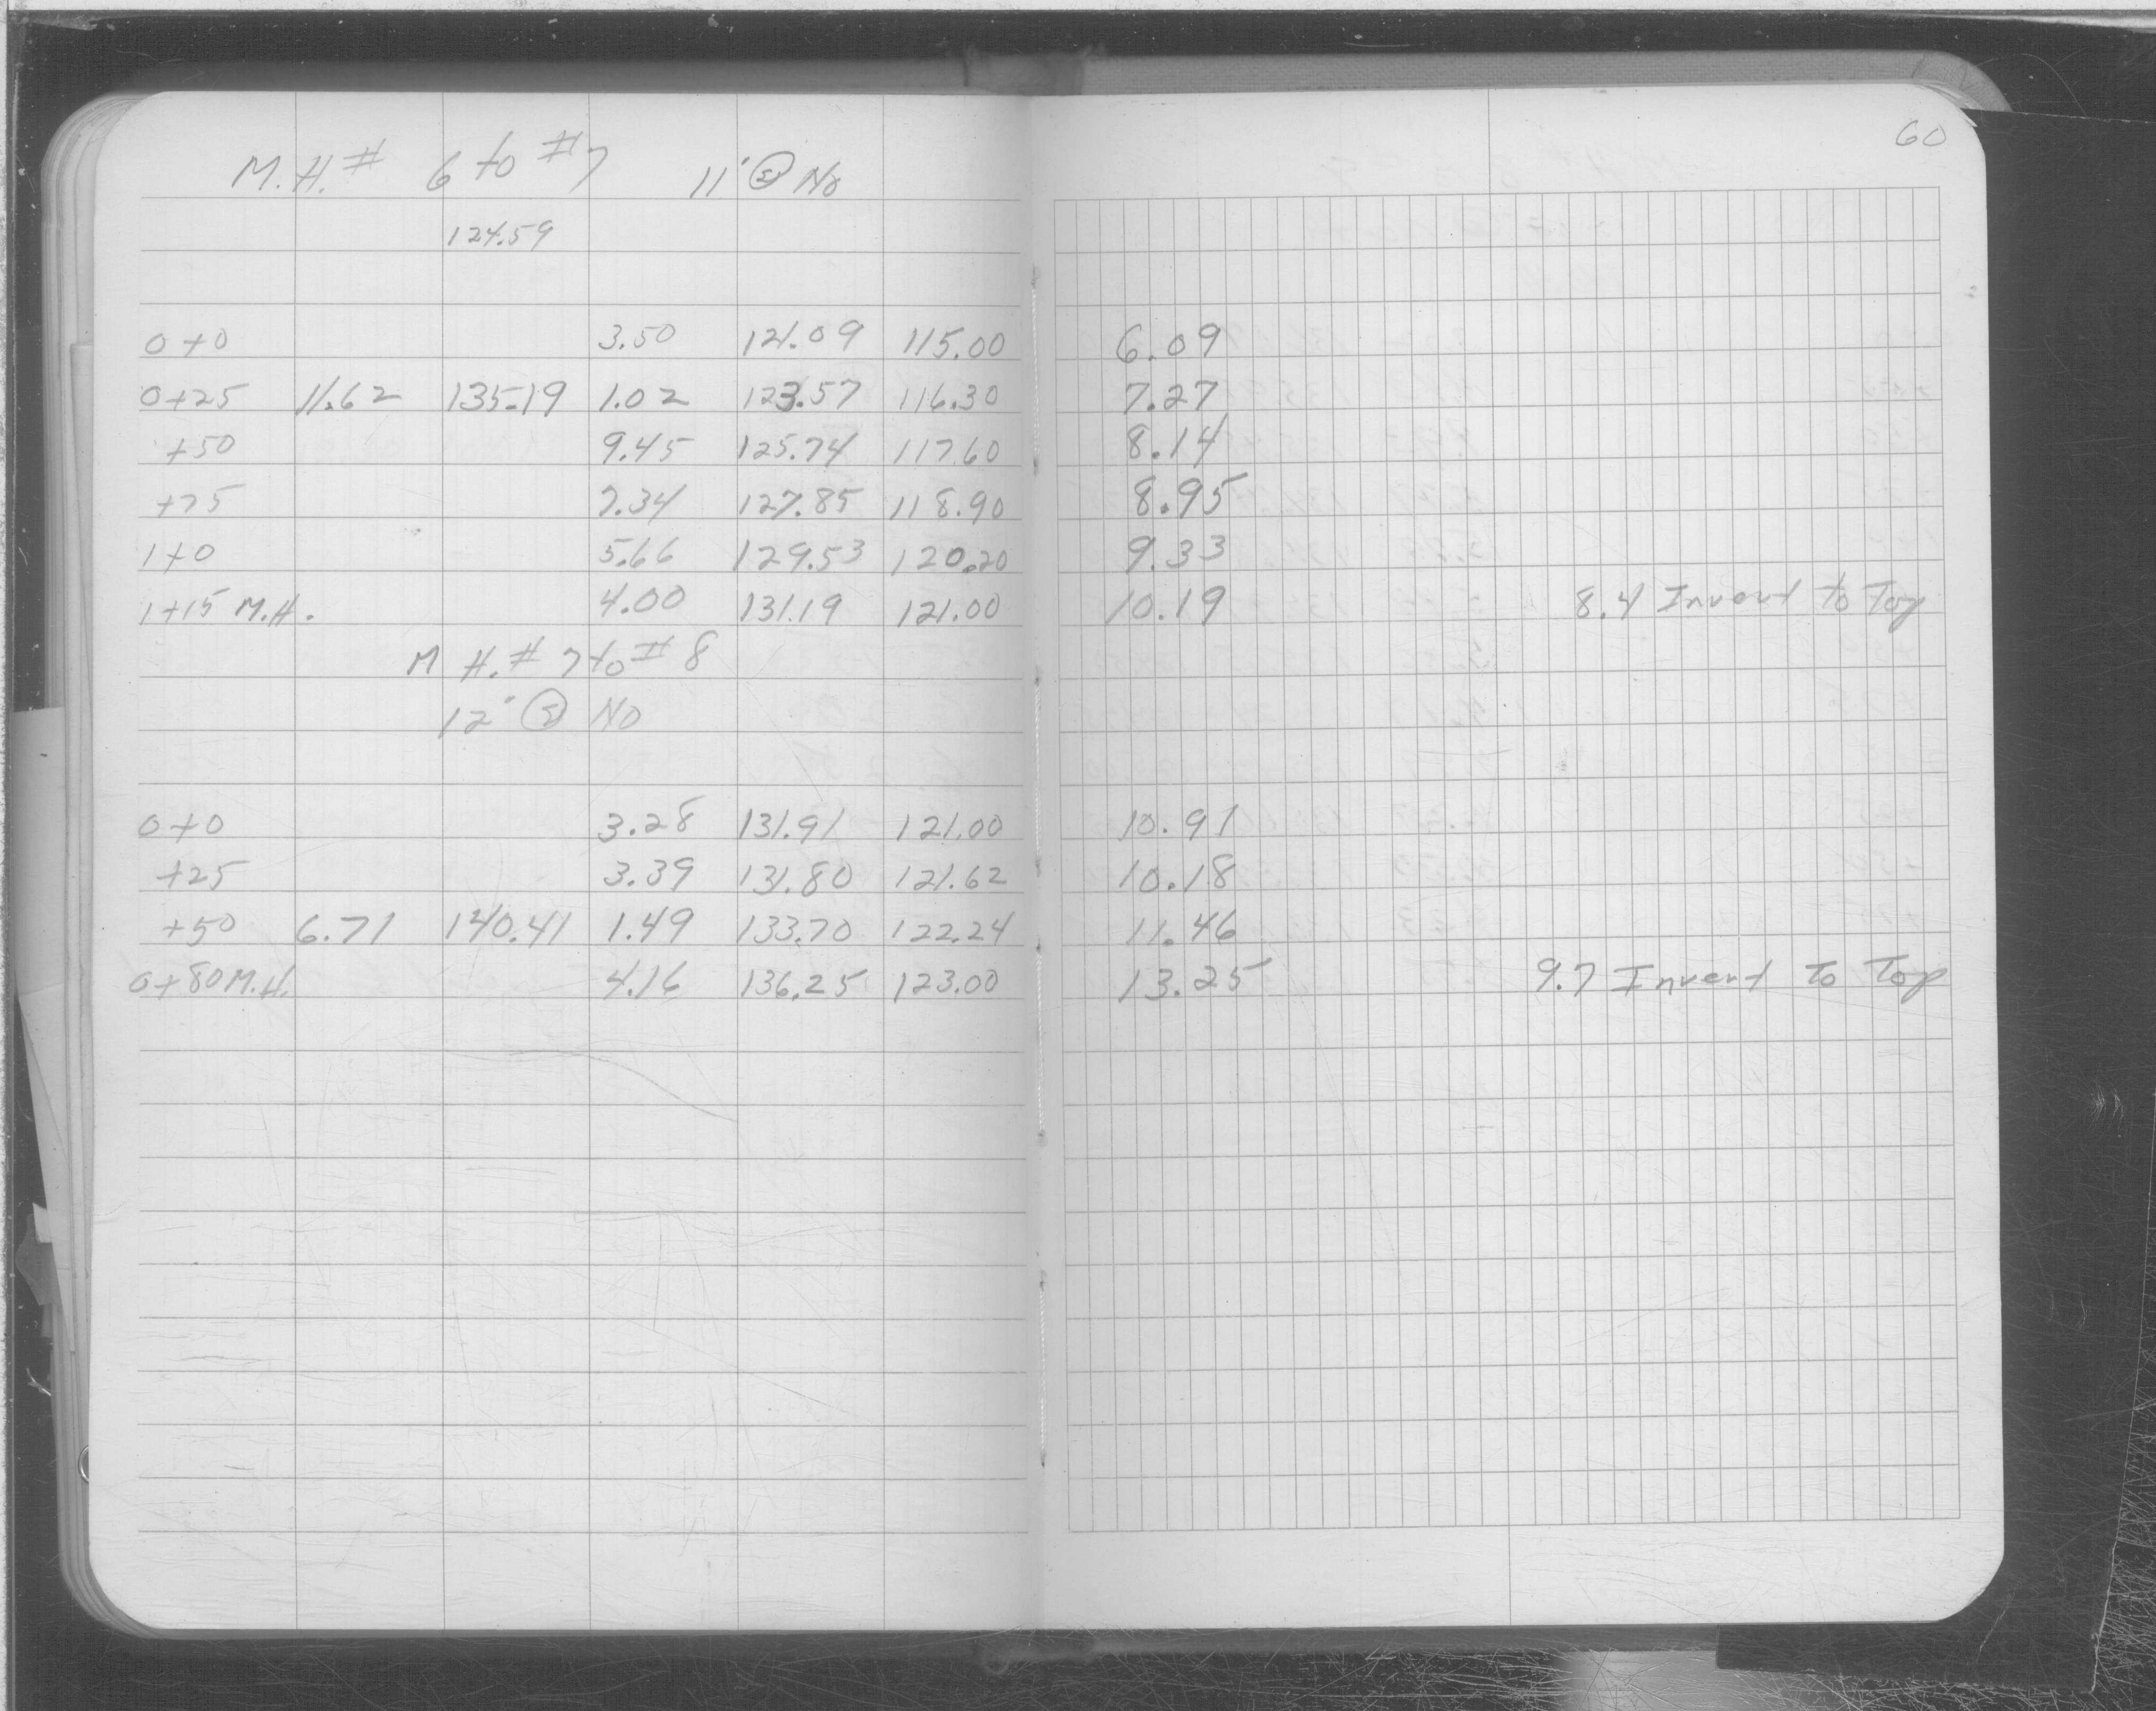 60
M.H.# 6 to #7 11' @ No
124.59
0+0 3.50 121.09 115.00 6.09
0+25 11.62 135.19 1.02 123.57 116.30 7.27
+50 9.45 125.74 117.60 8.14
+75 7.34 127.85 118.90 8.95
1+0 5.66 129.53 120.20 9.33
1+15 M.H. 4.00 131.19 121.00 10.19 8.4 Invert to Top
M H.# 7 to # 8
12' No
0+0 3.28 131.91 121.00 10.91
+25 3.39 131.80 121.62 10.18
+50 6.71 140.41 1.49 133.70 122.24 11.46
0+80 M.H. 4.16 136.25 123.00 13.25 9.7 Invert To Top